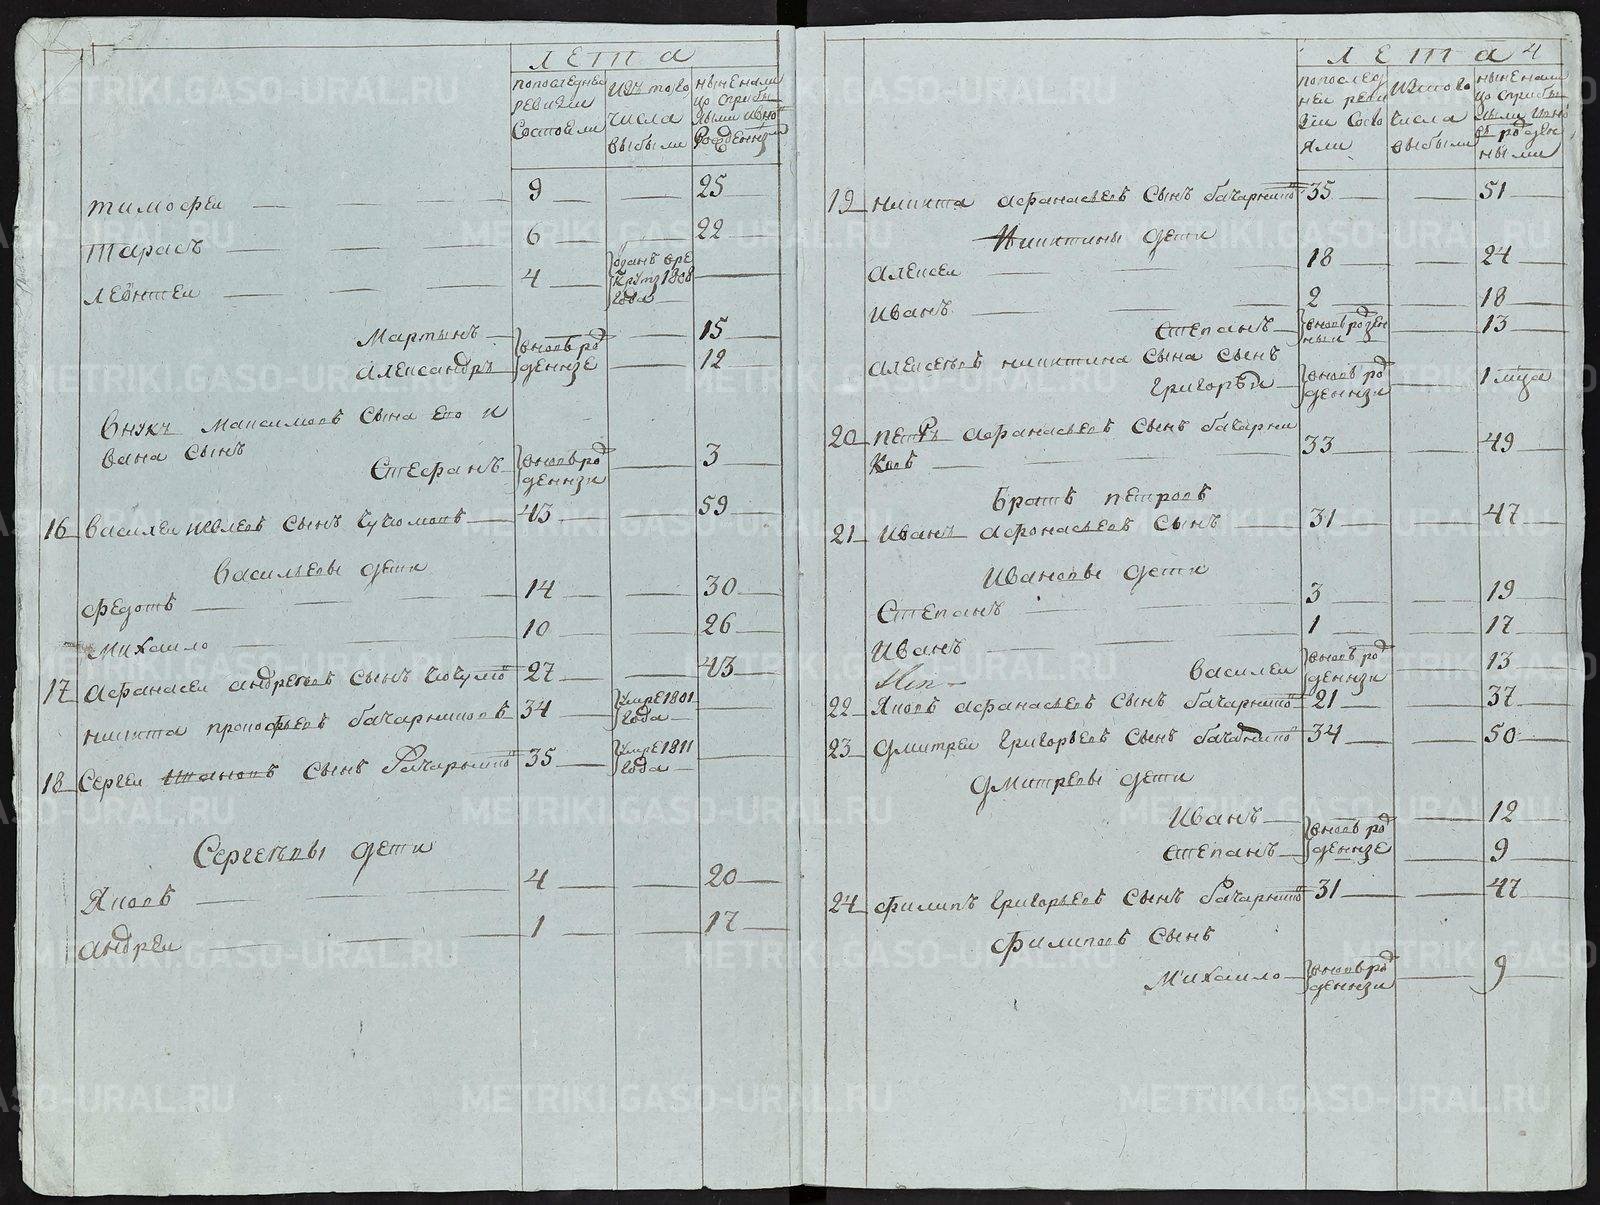 ЛЕТА
попоследнеи
ревизии
Состояли
Изтого
числа
выбыли
ныне нали
цо сприбы
лыми ивно
Рожденны
тимофеи 9 25
тарасъ 6 22
леонтеи 4 одань вре
круты 1808
года
Мартынъ 15
вновь ро
жденные
александръ 12
Внукъ максимовъ сына его и
вана сынъ
Стефанъ вновь ро
жденни 3
16 василеи сынъ 43 59
васильевы дети
федотъ 14 30
михаило 10 26
17 афанасеи андреевъ сынъ 27 43
никита прокофьевъ бачарниковъ 34 умре 1801
года
18 Сергеи сынъ Бачарнико 35 умре 1811
года
Сергеевы дети
Яковъ 4 20
андреи 1 17
ЛЕТА 4
попослед
неи реви
зіи Состо
яли
Изтого
числа
выбыли
ныне нали
цо сприбы
лыми ивно
въ рожден
ными
19 никита афанасьевъ сынъ бачарнико 35 51
Никитины дети
алексеи 18 24
Иванъ 2 18
Степанъ вновь рожден
ныи 13
алексеевъ никитина сына сынъ
григореи вновь ро
жденни 1 мца
20 петръ афанасьевъ сынъ бачарни
ковъ 33 49
Братъ петровъ
21 Иванъ афонасьевъ сынъ 31 47
Ивановы дети
Степанъ 3 19
Иванъ 1 17
василеи вновь ро
жденни 13
22 Яковъ афанасьевъ сынъ бачарнико 21 37
23 дмитреи григорьевъ сынъ бачарнико 34 50
дмитревы дети
Иванъ 12
вновь ро
жденные
степанъ 9
24 филипъ григорьевъ сынъ бачарнико 31 47
филиповъ сынъ
михаило вновь ро
жденни 9
METRIKI.GASO-URAL.RU